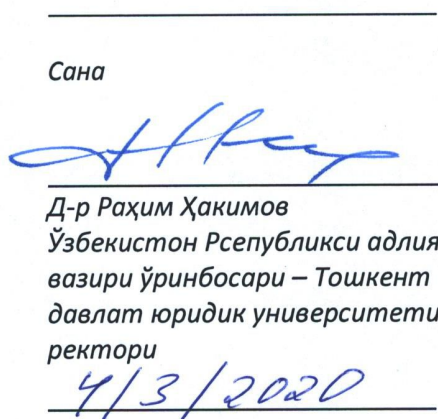 Сана
Д-р Раҳим Ҳакимов
Ўзбекистон Рсепубликси адлия
вазири ўринбосари – Тошкент
давлат юридик университети
ректори
4/3/2020